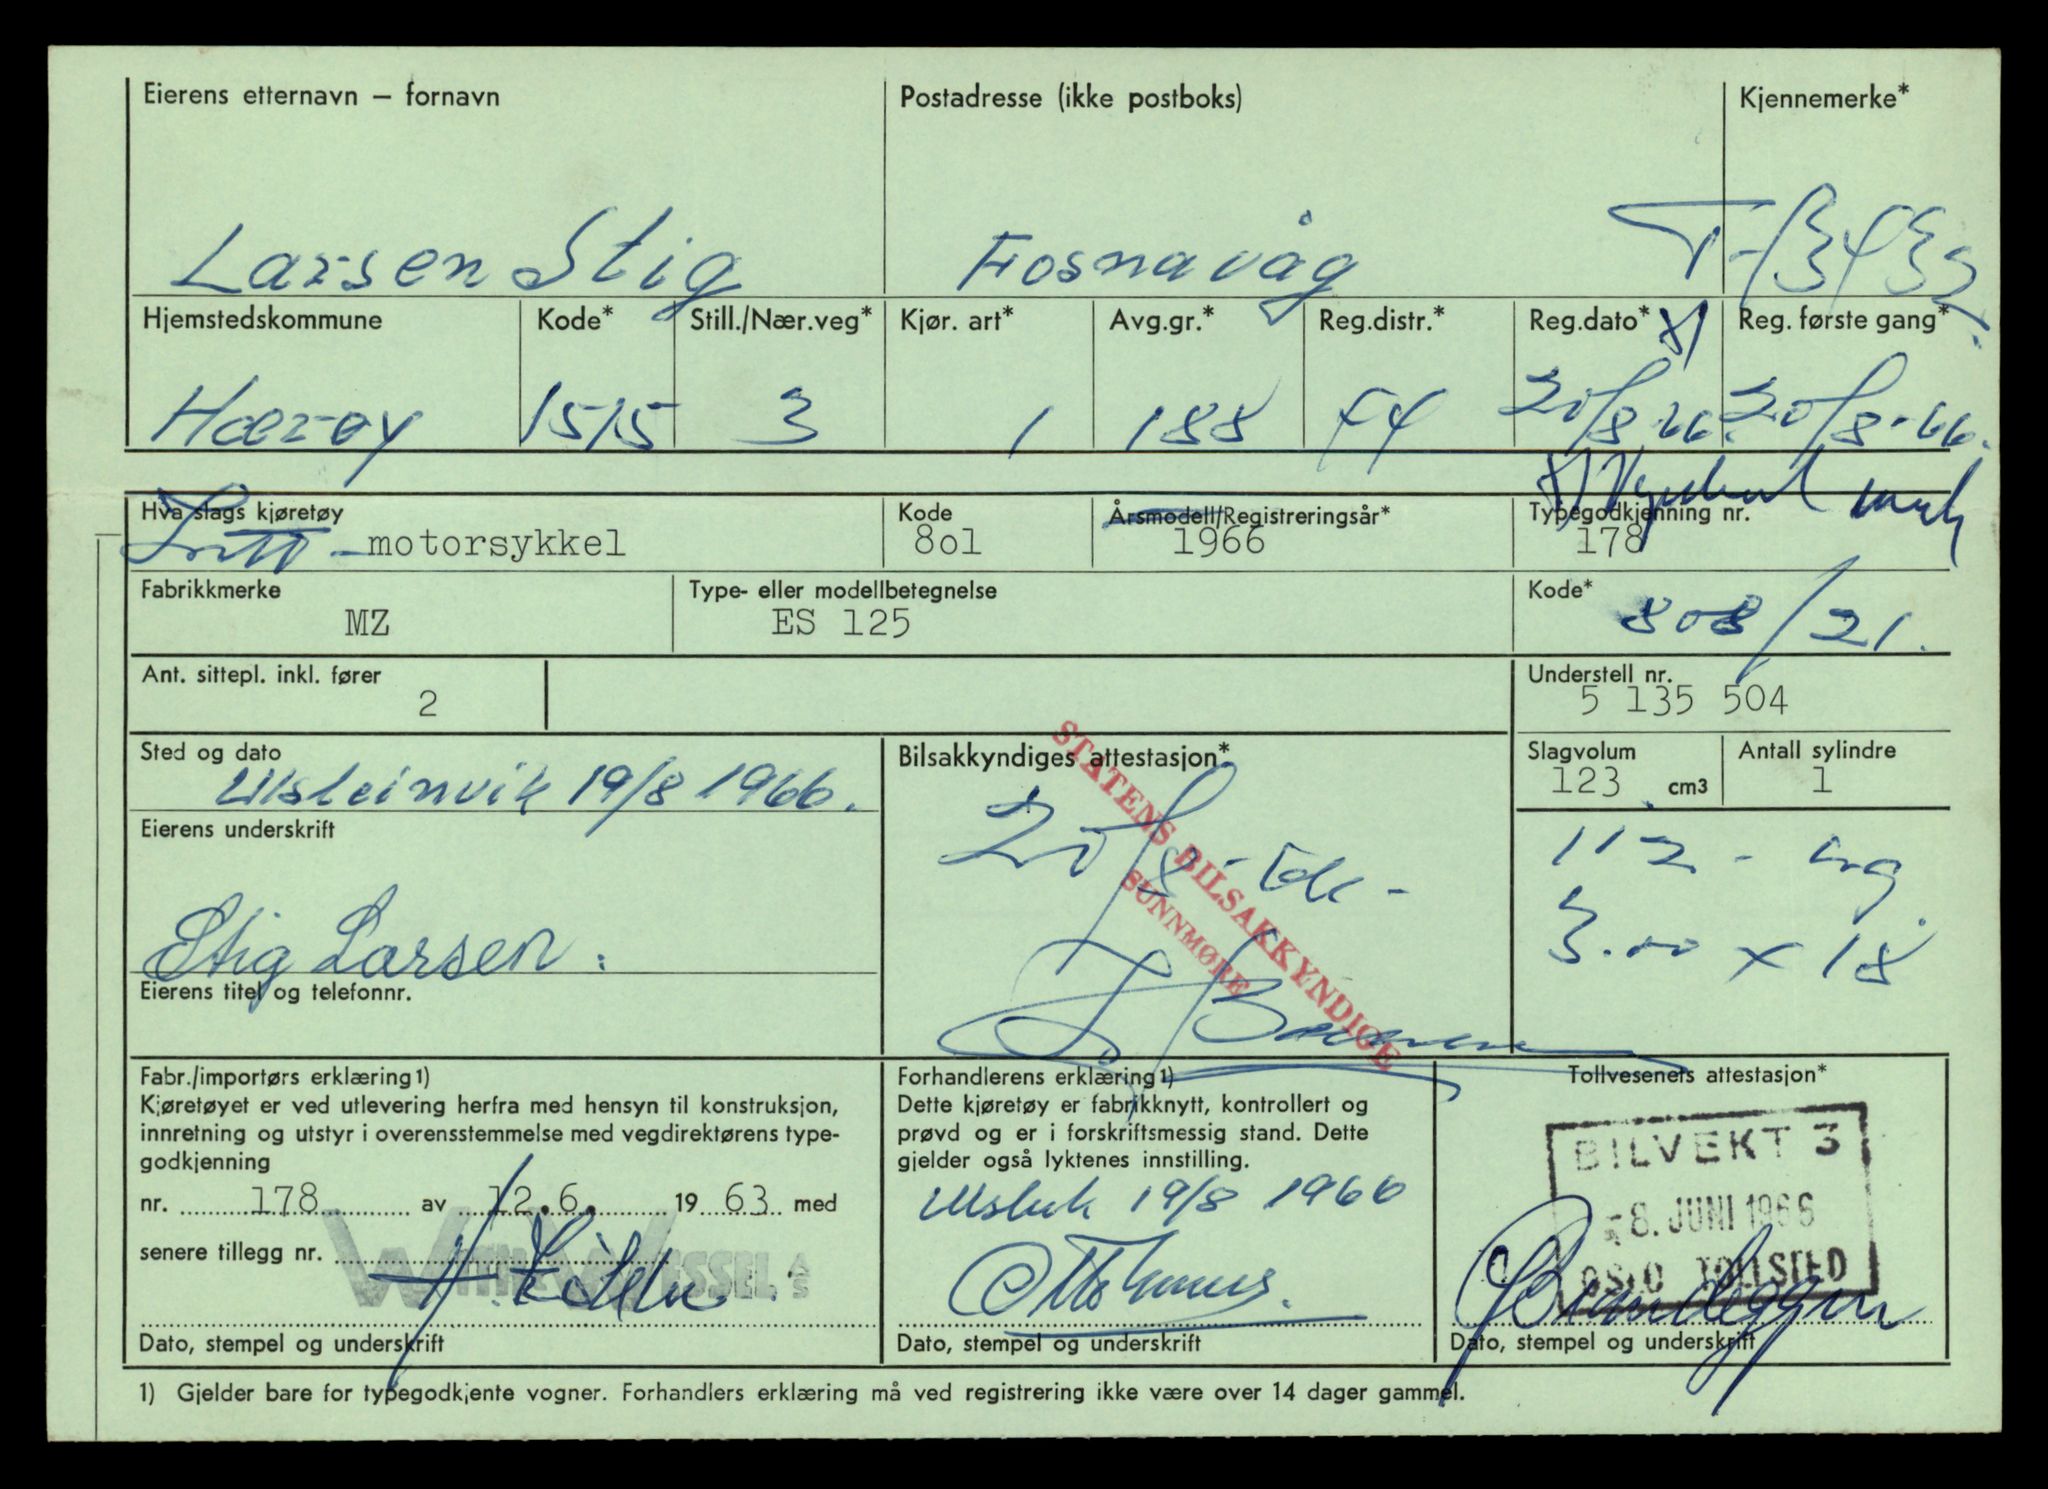 Eierens etternavn – fornavn
Postadresse (ikke postboks)
Kjennemerke*
Larsen Stig
Fosnavåg
Hjemstedskommune
Kode*
Still./Nær.veg*
Kjør. art*
Avg.gr.*
Reg.distr.*
Reg.dato*
Reg. første gang*
Hærøy
1515
3
1
188
44
20/8-66.
20/8-66.
Hva slags kjøretøy
Lett-motorsykkel
Kode
8o1
Årsmodell/Registreringsår*
1966
Typegodkjenning nr.
178
Fabrikkmerke
MZ
Type- eller modellbetegnelse
ES 125
Kode*
808/21.
Ant. sittepl. inkl. fører
2
Understell nr.
5 135 504
Sted og dato
Ulsteinvik 19/8 1966.
Bilsakkyndiges attestasjon*
STATENS BILSAKKYNDIGE
SUNNMØRE
20/8
Slagvolum
123 cm3
Antall sylindre
1
112 - kg
3.00 x 18
Eierens underskrift
Stig Larsen.
Eierens titel og telefonnr.
Fabr./importørs erklæring1)
Kjøretøyet er ved utlevering herfra med hensyn til konstruksjon,
innretning og utstyr i overensstemmelse med vegdirektørens type-
godkjenning
nr. 178 av 12.6. 19 63 med
senere tillegg nr.
WITH & WESSEL A/S
Dato, stempel og underskrift
Forhandlerens erklæring1)
Dette kjøretøy er fabrikknytt, kontrollert og
prøvd og er i forskriftsmessig stand. Dette
gjelder også lyktenes innstilling.
19/8 1966
Dato, stempel og underskrift
Tollvesenets attestasjon*
BILVEKT 3
-8. JUNI 1966
OSLO TOLLSTED
Dato, stempel og underskrift
1) Gjelder bare for typegodkjente vogner. Forhandlers erklæring må ved registrering ikke være over 14 dager gammel.